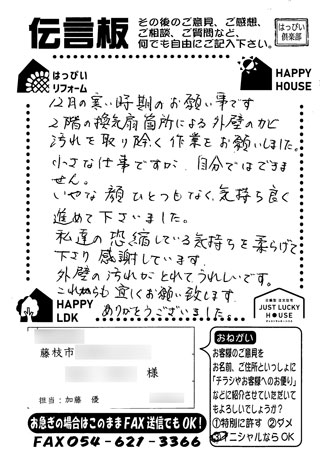 伝言板
その後のご意見、ご感想、
ご相談、ご質問など、
何でも自由にご記入下さい。
はっぴい
倶楽部
はっぴい
リフォーム
HAPPY
HOUSE
12月の寒い時期のお願い事です
2階の換気扇箇所による外壁のカビ
汚れを取り除く作業をお願いしました。
小さな仕事ですが、自分ではできま
せん。
いやな顔ひとつもなく、気持ち良く
進めて下さいました。
私達の恐縮している気持ちを柔らげて
下さり感謝しています。
外壁の汚れがとれてうれしいです。
これからも宜しくお願い致します。
ありがとうございました。
HAPPY
LDK
JUST LUCKY
HOUSE
藤枝市
様
担当:加藤 優
おねがい
お客様のご意見を
お名前、ご住所といっしょに
「チラシやお客様へのお便り」
などに紹介させていただいて
もよろしいでしょうか?
①特別に許す ②ダメ
③イニシャルならOK
お急ぎの場合はこのままFAX送信でもOK!
FAX054-621-3366